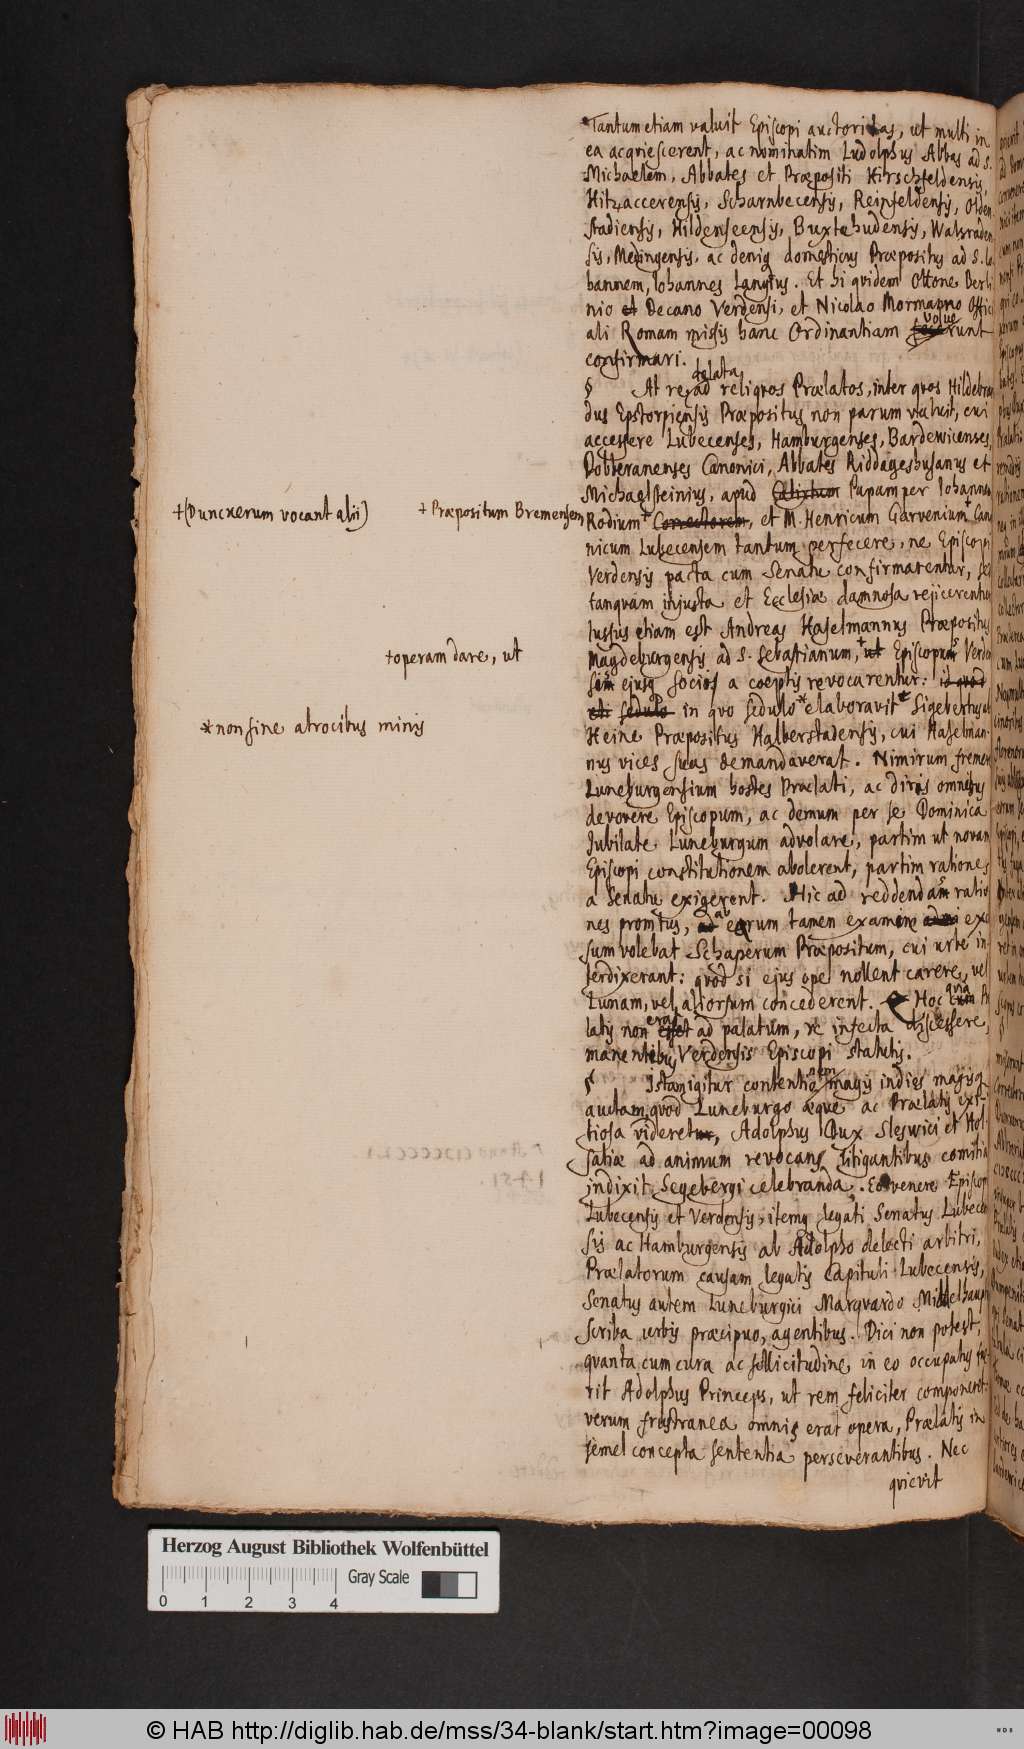 Tantum etiam valuit Episcopi auctoritas, ut multi in
ea acqviescerent, ac nominatim Ludolphus Abbas ad S.
Michaelem, Abbates et Præpositi Hirschfeldensis,
Hitzaccerensis, Scharnbecensis, Reinfeldensis, Olden
stadiensis, Hildenseensis, Buxtehudensis, Walsraden
sis, Medingensis, ac deniq domesticus Præpositus ad S. Jo
hannem, Johannes Langius. Et hi qvidem Ottone Berli
nio et Decano Verdensi, et Nicolao Mormanno Offici
ali Romam missis hanc Ordinantiam volue runt
confirmari.
§ At re delata ad reliqvos Prælatos, inter qvos Hildebran
dus Epstorpiensis Præpositus non parum valuit, cui
accessere Lubecenses, Hamburgenses, Bardewicenses,
Dobberanenses Canonici, Abbates Riddageshusanus et
Michaelsteinius, apud Calixtum Papam per Johannem
+(Dunckerum vocant alii) + Præpositum Bremensem
Rodium + Correctorem, et M. Henricum Garvenium + Cano
nicum Lubecensem tantum perfecere, ne Episcopi
Verdensis pacta cum Senatu confirmarentur, sed
tanqvam injusta et Ecclesiæ damnosa rejicerentur
Jussus etiam est Andreas Haselmannus Præpositus
+operam dare, ut
Magdeburgensis ad S. Sebastianum, + ut Episcopus Verden
sis ejusq socios a cœptis revocarentur: id qvod
* non sine atrocibus minis
eti sedulo in qvo sedulo * elaboravit Sigebertus ab
Heine Præpositus Halberstadensis, cui Haselman-
nus vices suas demandaverat. Nimirum fremere
Luneburgensium hostes Prælati, ac diris omnibus
devovere Episcopum, ac demum per se Dominica
Jubilate Luneburgum advolare, partim ut novam
Episcopi constitutionem abolerent, partim rationes
a Senatu exigerent. Hic ad reddendas ratio
nes promtus, ad ab earum tamen examine exclu
sum volebat Schaperum Præpositum, cui urbe in-
terdixerant: qvod si ejus ope nollent carere, vel
Lunam, vel aliorsum concederent. Hoc qvia cum Præ
latis non erat esset ad palatum, re infecta discessere,
manentibus Verdensis Episcopi statutis.
§ Istam igitur contentionem magis indies magisq
auctam, qvod Luneburgo æqve ac Prælatis exi-
tiosa videretur, Adolphus Dux Sleswici et Hol-
satiæ ad animum revocans litigantibus comitia
indixit Segebergi celebranda. Eo venere Episcopi
Lubecensis et Verdensis, itemq legati Senatus Lubecen
sis ac Hamburgensis ab Adolpho delecti arbitri,
Prælatorum causam legatis Capituli Lubecensis,
Senatus autem Luneburgici Marqvardo Mittelhaupt
scriba urbis præcipuo, agentibus. Dici non potest,
qvanta cum cura ac sollicitudine in eo occupatus fue
rit Adolphus Princeps, ut rem feliciter componeret:
verum frustranea omnis erat opera, Prælatis in
semel concepta sententia perseverantibus. Nec
qvievit
Herzog August Bibliothek Wolfenbüttel
Gray Scale
0 1 2 3 4
© HAB http://diglib.hab.de/mss/34-blank/start.htm?image=00098